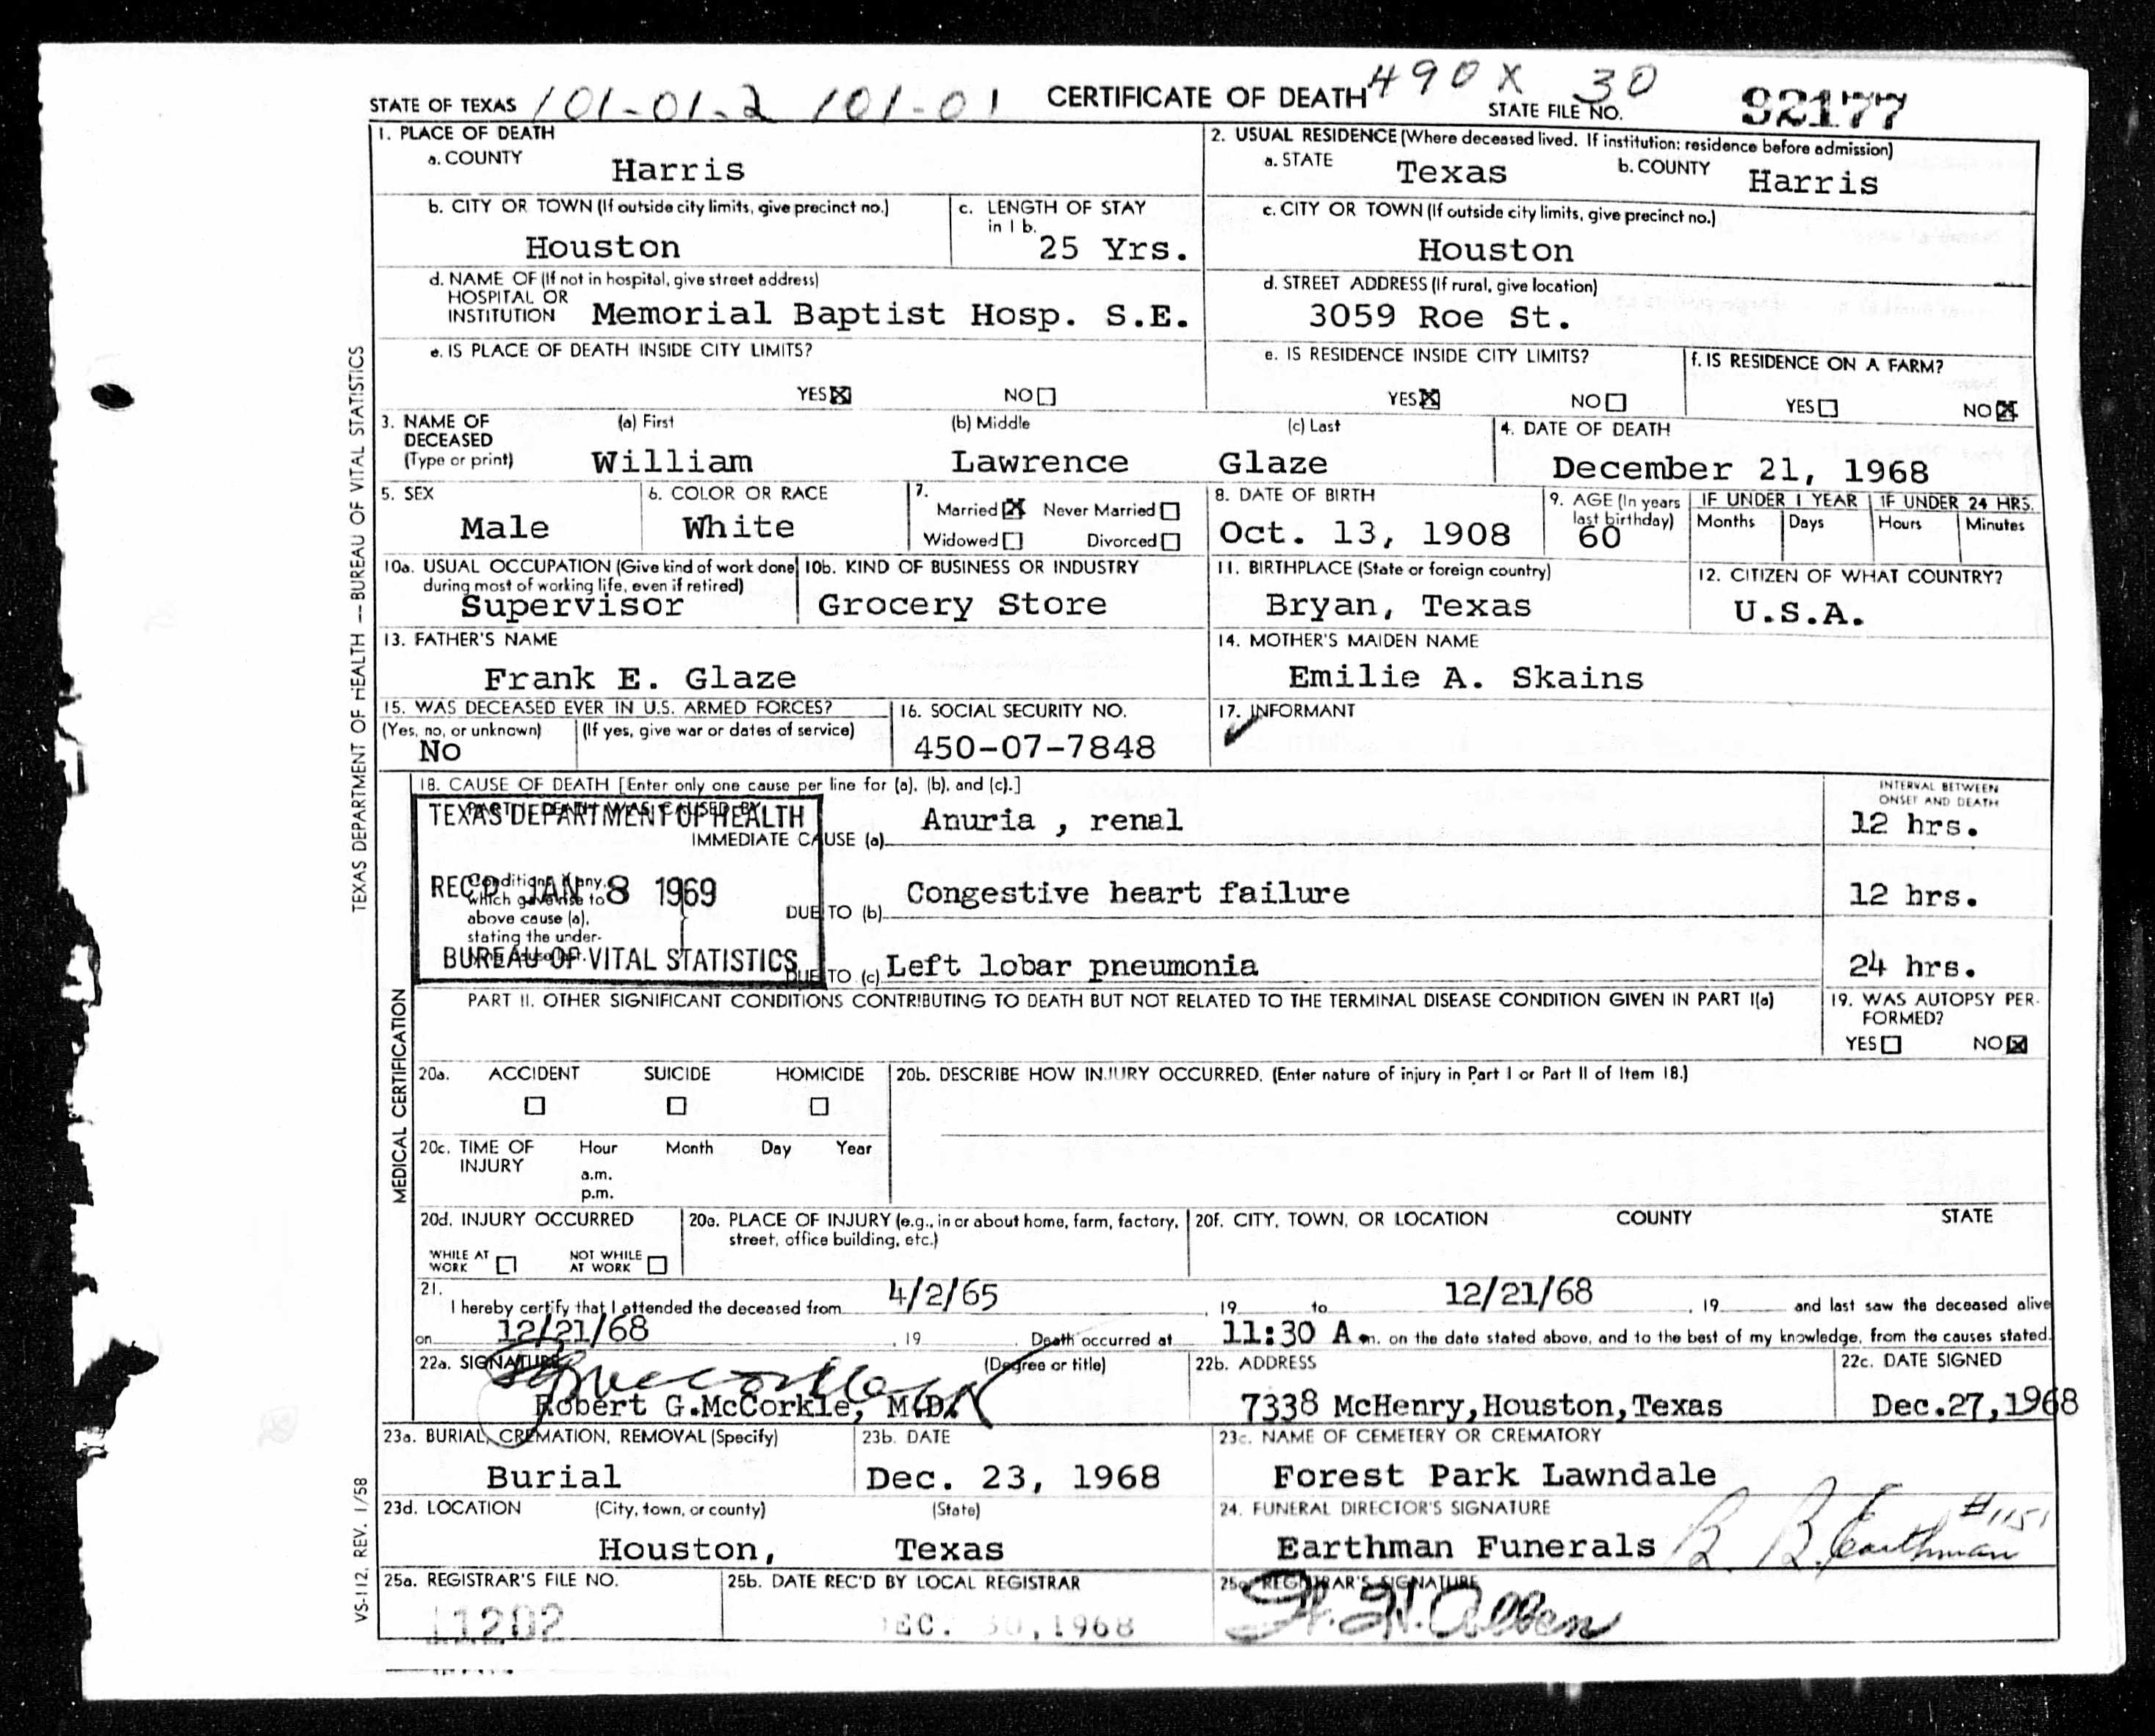 STATE OF TEXAS 101-01-2 101-01 CERTIFICATE OF DEATH 490X 30 STATE FILE NO. 92177
1. PLACE OF DEATH
a. COUNTY
Harris
2. USUAL RESIDENCE (Where deceased lived. If institution: residence before admission)
a. STATE Texas b. COUNTY Harris
b. CITY OR TOWN (If outside city limits, give precinct no.)
Houston
c. LENGTH OF STAY in 1 b.
25 Yrs.
c. CITY OR TOWN (If outside city limits, give precinct no.)
Houston
d. NAME OF (If not in hospital, give street address)
HOSPITAL OR
INSTITUTION Memorial Baptist Hosp. S.E.
d. STREET ADDRESS (If rural, give location)
3059 Roe St.
e. IS PLACE OF DEATH INSIDE CITY LIMITS?
YES☒ NO☐
e. IS RESIDENCE INSIDE CITY LIMITS?
YES☒ NO☐
f. IS RESIDENCE ON A FARM?
YES☐ NO☒
3. NAME OF DECEASED (Type or print)
(a) First (b) Middle (c) Last
William Lawrence Glaze
4. DATE OF DEATH
December 21, 1968
5. SEX
Male
6. COLOR OR RACE
White
7.
Married☒ Never Married☐
Widowed☐ Divorced☐
8. DATE OF BIRTH
Oct. 13, 1908
9. AGE (In years last birthday)
60
IF UNDER 1 YEAR
Months Days
IF UNDER 24 HRS.
Hours Minutes
10a. USUAL OCCUPATION (Give kind of work done during most of working life, even if retired)
Supervisor
10b. KIND OF BUSINESS OR INDUSTRY
Grocery Store
11. BIRTHPLACE (State or foreign country)
Bryan, Texas
12. CITIZEN OF WHAT COUNTRY?
U.S.A.
13. FATHER'S NAME
Frank E. Glaze
14. MOTHER'S MAIDEN NAME
Emilie A. Skains
15. WAS DECEASED EVER IN U.S. ARMED FORCES?
(Yes, no, or unknown) (If yes, give war or dates of service)
No
16. SOCIAL SECURITY NO.
450-07-7848
17. INFORMANT
18. CAUSE OF DEATH [Enter only one cause per line for (a), (b), and (c).]
INTERVAL BETWEEN ONSET AND DEATH
PART I. DEATH WAS CAUSED BY
TEXAS DEPARTMENT OF HEALTH
IMMEDIATE CAUSE (a) Anuria , renal 12 hrs.
REC'D JAN 8 1969
Conditions, if any, which gave rise to above cause (a), stating the under-
DUE TO (b) Congestive heart failure 12 hrs.
BUREAU OF VITAL STATISTICS
DUE TO (c) Left lobar pneumonia 24 hrs.
PART II. OTHER SIGNIFICANT CONDITIONS CONTRIBUTING TO DEATH BUT NOT RELATED TO THE TERMINAL DISEASE CONDITION GIVEN IN PART I(a)
19. WAS AUTOPSY PERFORMED?
YES☐ NO☒
20a. ACCIDENT SUICIDE HOMICIDE
☐ ☐ ☐
20b. DESCRIBE HOW INJURY OCCURRED. (Enter nature of injury in Part I or Part II of Item 18.)
20c. TIME OF INJURY Hour Month Day Year
a.m.
p.m.
20d. INJURY OCCURRED
WHILE AT WORK ☐ NOT WHILE AT WORK ☐
20e. PLACE OF INJURY (e.g., in or about home, farm, factory, street, office building, etc.)
20f. CITY, TOWN, OR LOCATION COUNTY STATE
21.
I hereby certify that I attended the deceased from 4/2/65, 19 to 12/21/68, 19 and last saw the deceased alive
on 12/21/68, 19 Death occurred at 11:30 A m. on the date stated above, and to the best of my knowledge, from the causes stated.
22a. SIGNATURE (Degree or title)
Robert G.McCorkle, M.D.
22b. ADDRESS
7338 McHenry,Houston,Texas
22c. DATE SIGNED
Dec.27,1968
23a. BURIAL, CREMATION, REMOVAL (Specify)
Burial
23b. DATE
Dec. 23, 1968
23c. NAME OF CEMETERY OR CREMATORY
Forest Park Lawndale
23d. LOCATION (City, town, or county) (State)
Houston, Texas
24. FUNERAL DIRECTOR'S SIGNATURE
Earthman Funerals B. B. Earthman #1151
25a. REGISTRAR'S FILE NO.
11202
25b. DATE REC'D BY LOCAL REGISTRAR
DEC. 30, 1968
25c. REGISTRAR'S SIGNATURE
TEXAS DEPARTMENT OF HEALTH — BUREAU OF VITAL STATISTICS
MEDICAL CERTIFICATION
VS-112, REV. 1/58